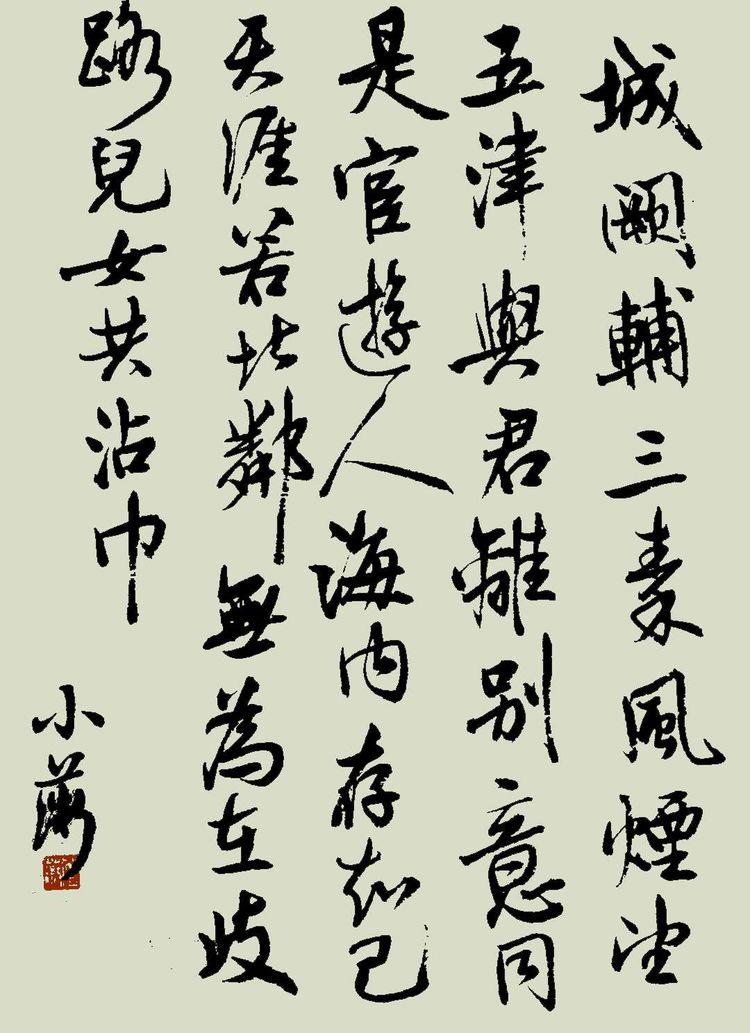 城闕輔三秦風煙望
五津與君離別意同
是宦遊人海内存知己
天涯若比鄰無為在歧
路兒女共沾巾
小